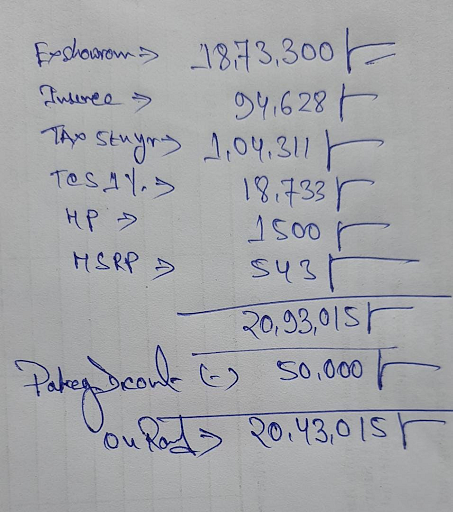 Exshowrom => 18,73,300/-
Insurece => 94,628/-
TAX 5tuyr => 1,04,311/-
TCS 1%. => 18,733/-
HP => 1500/-
HSRP => 543/-
20,93,015/-
(-) 50,000/-
on Road => 20,43,015/-